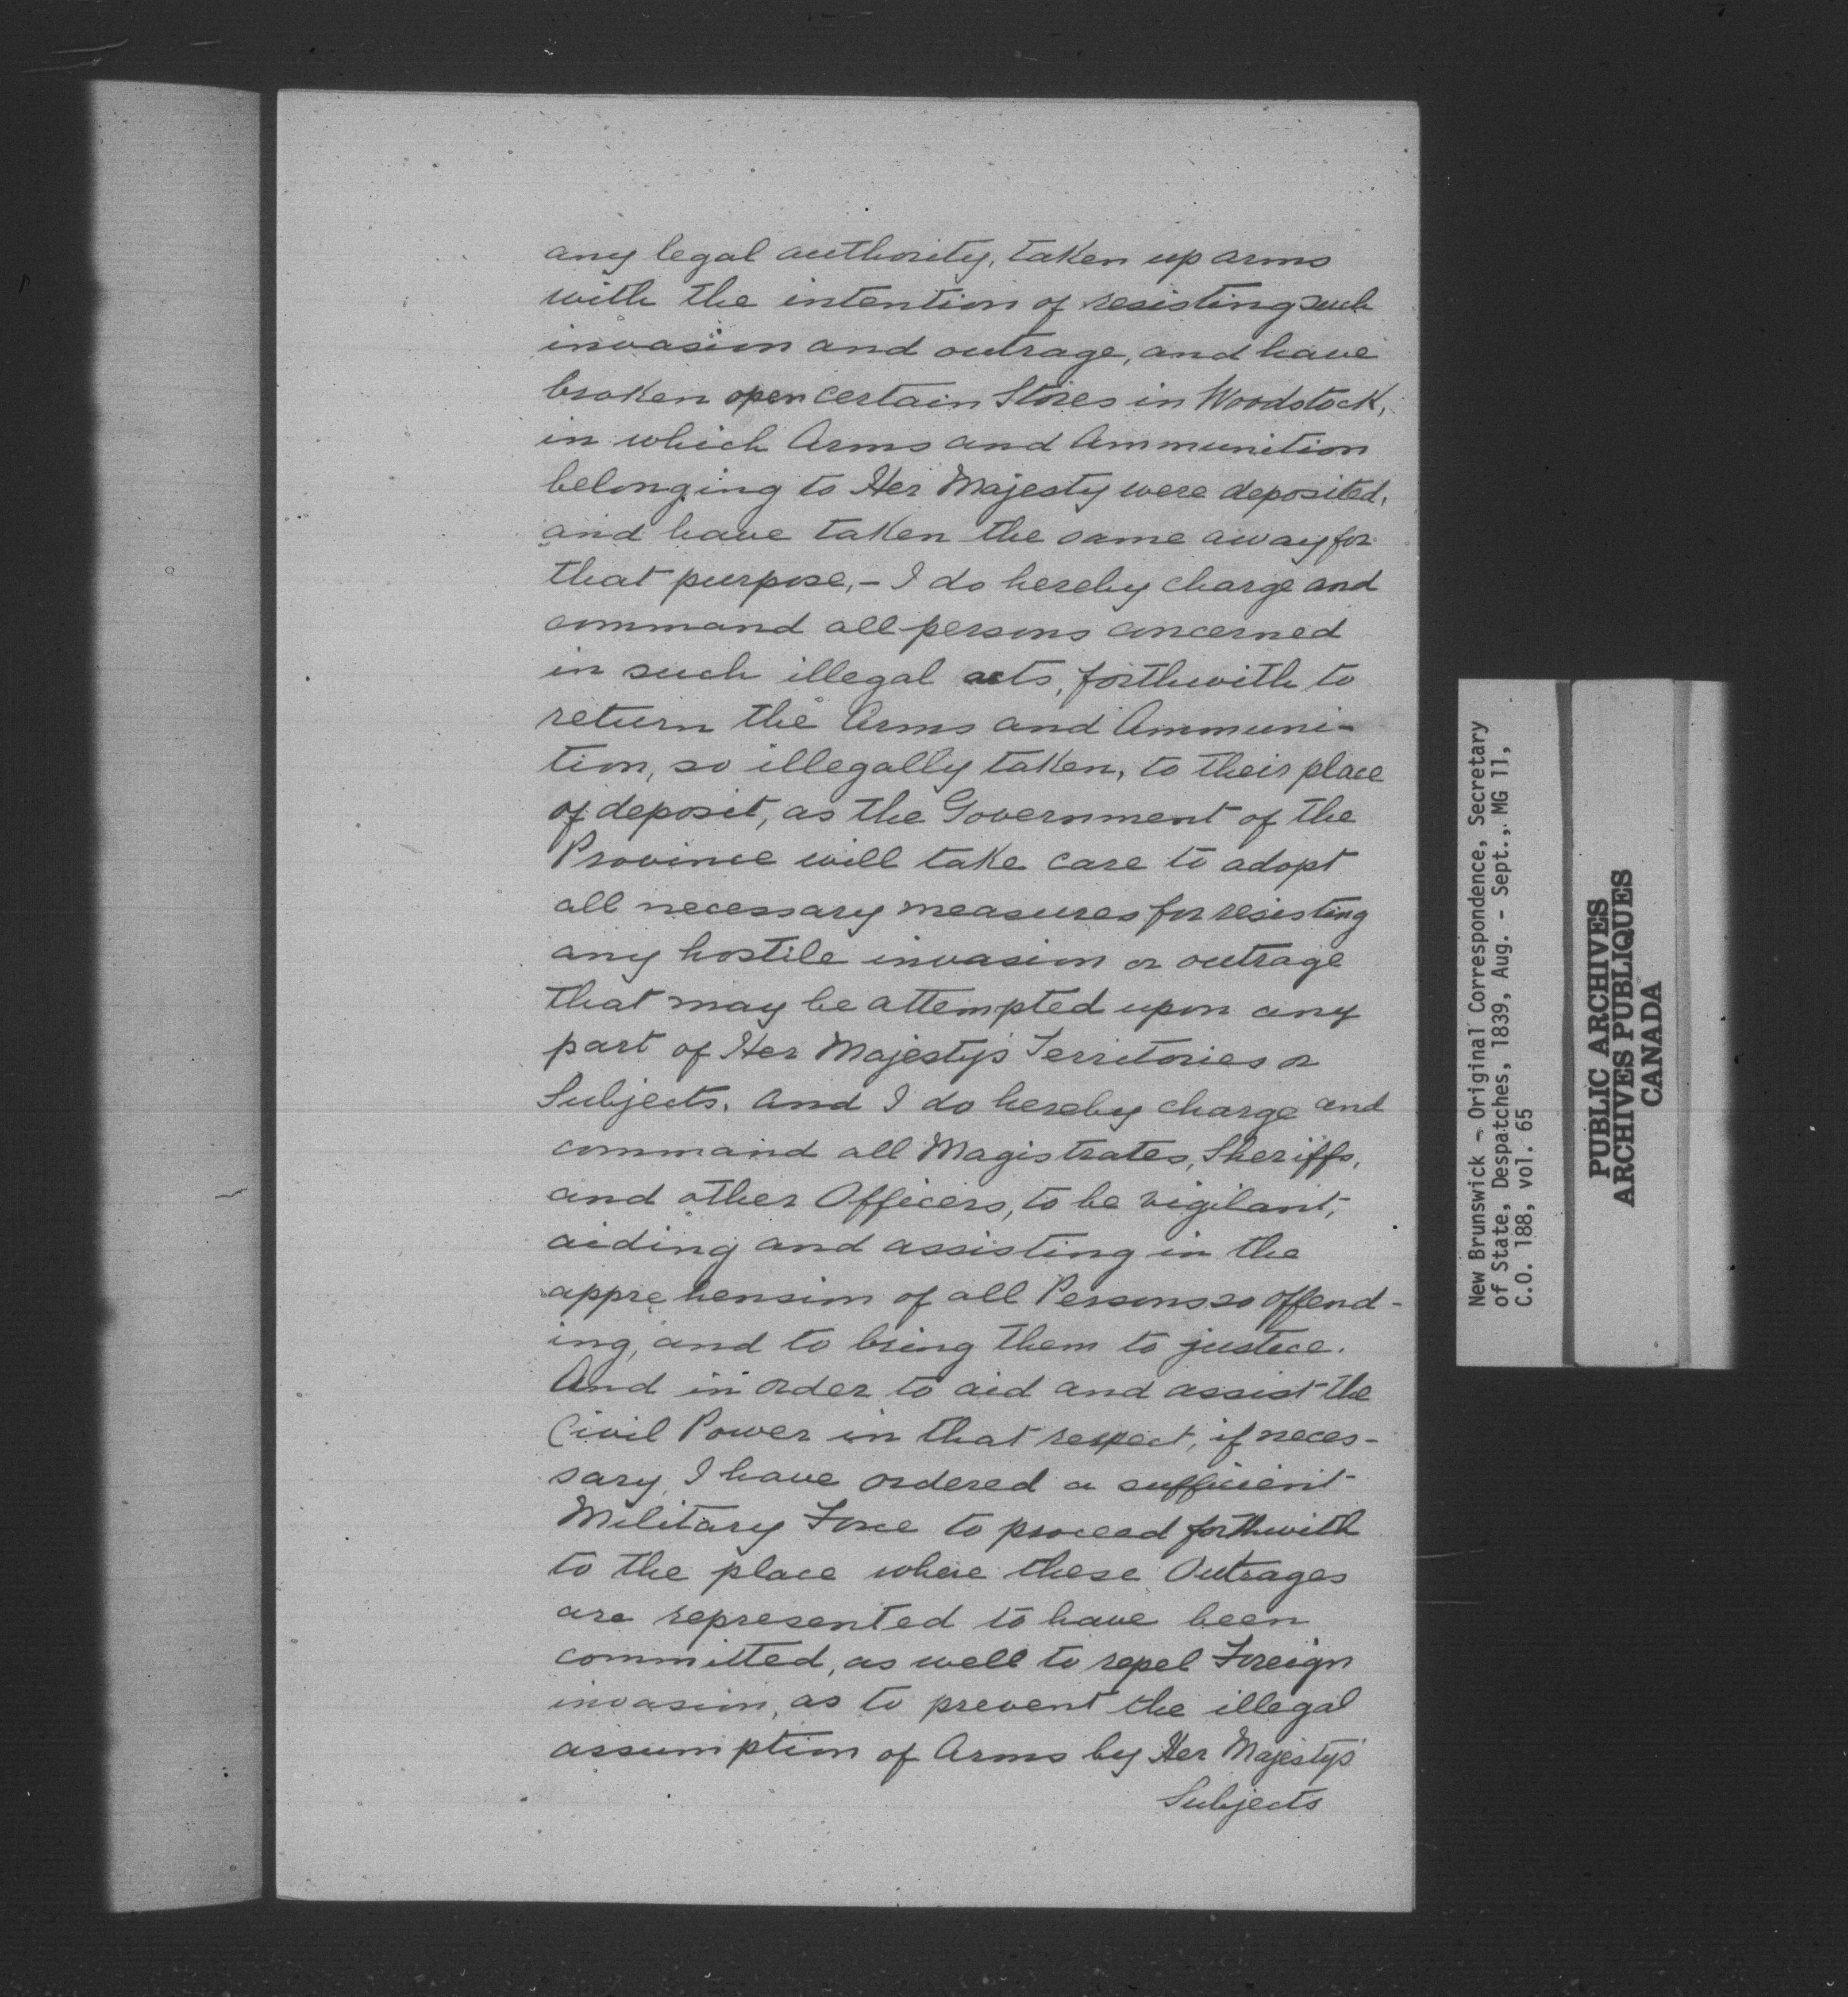 any legal authority, taken up arms
with the intention of resisting such
invasion and outrage, and have
broken open certain Stores in Woodstock,
in which Arms and Ammunition
belonging to Her Majesty were deposited,
and have taken the same away for
that purpose,- I do hereby charge and
command all persons concerned
in such illegal acts, forthwith to
return the Arms and Ammuni-
tion, so illegally taken, to their place
of deposit, as the Government of the
Province will take care to adopt
all necessary measures for resisting
any hostile invasion or outrage
that may be attempted upon any
part of Her Majesty's Territories or
Subjects. And I do hereby charge and
command all Magistrates, Sheriffs,
and other Officers, to be vigilant,
aiding and assisting in the
apprehension of all Persons so offend-
ing, and to bring them to justice.
And in order to aid and assist the
Civil Power in that respect, if neces-
sary, I have ordered a sufficient
Military Force to proceed forthwith
to the place where these Outrages
are represented to have been
committed, as well to repel Foreign
invasion, as to prevent the illegal
assumption of Arms by Her Majesty's
Subjects
New Brunswick - Original Correspondence, Secretary
of State, Despatches, 1839, Aug. - Sept., MG 11,
C.O. 188, vol. 65
PUBLIC ARCHIVES
ARCHIVES PUBLIQUES
CANADA